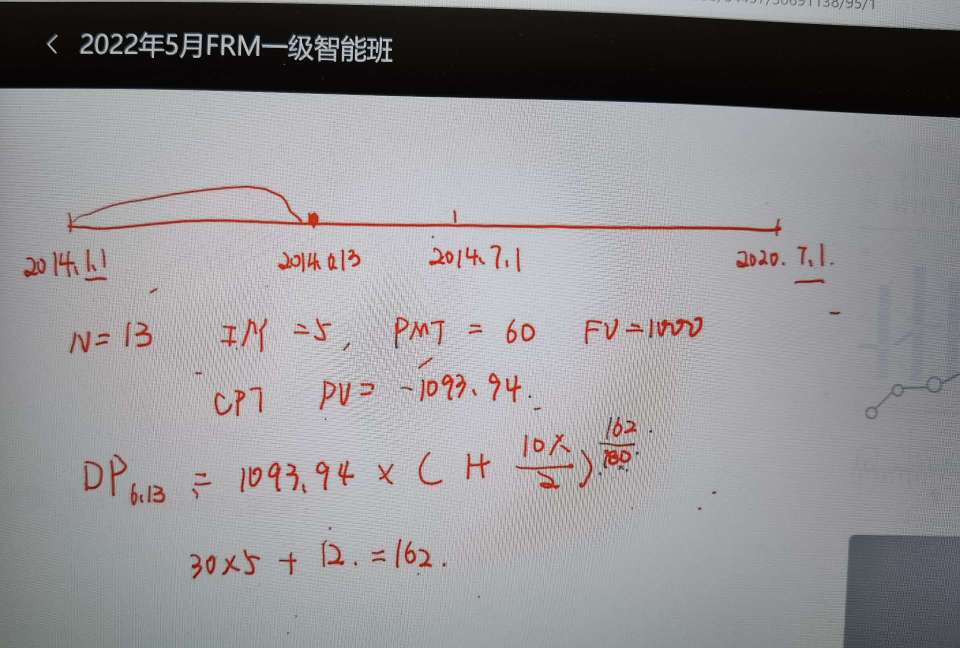 38691138/95/1
< 2022年5月FRM一级智能班
2014.1.1 2014.6.13 2014.7.1 2020.7.1.
N=13 I/Y=5, PMT=60 FV=1000
CPT PV=-1093.94.
DP6.13 = 1093.94 × (1+ 10%/2)^162/180.
30×5+12.=162.